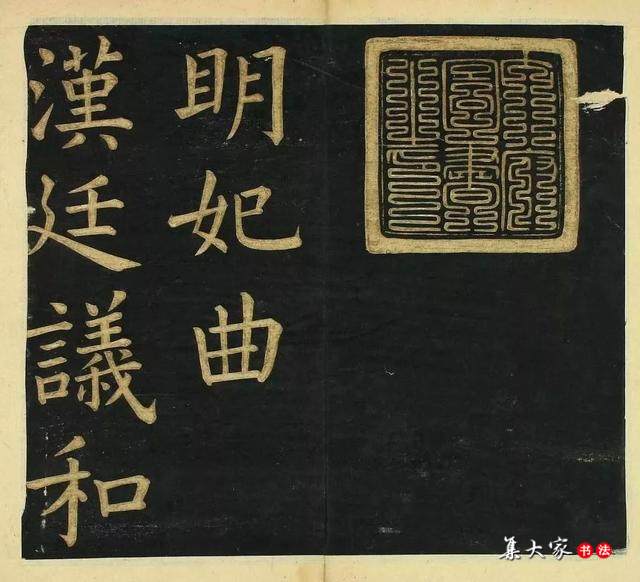 明妃曲
漢廷議和
集大家 书法